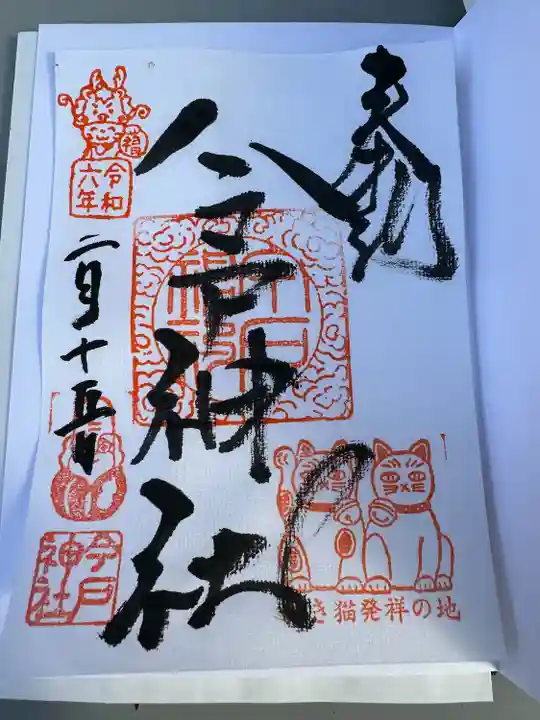 奉拝
今戸神社
令和
六年
二月十五日
今戸
神社
き猫発祥の地